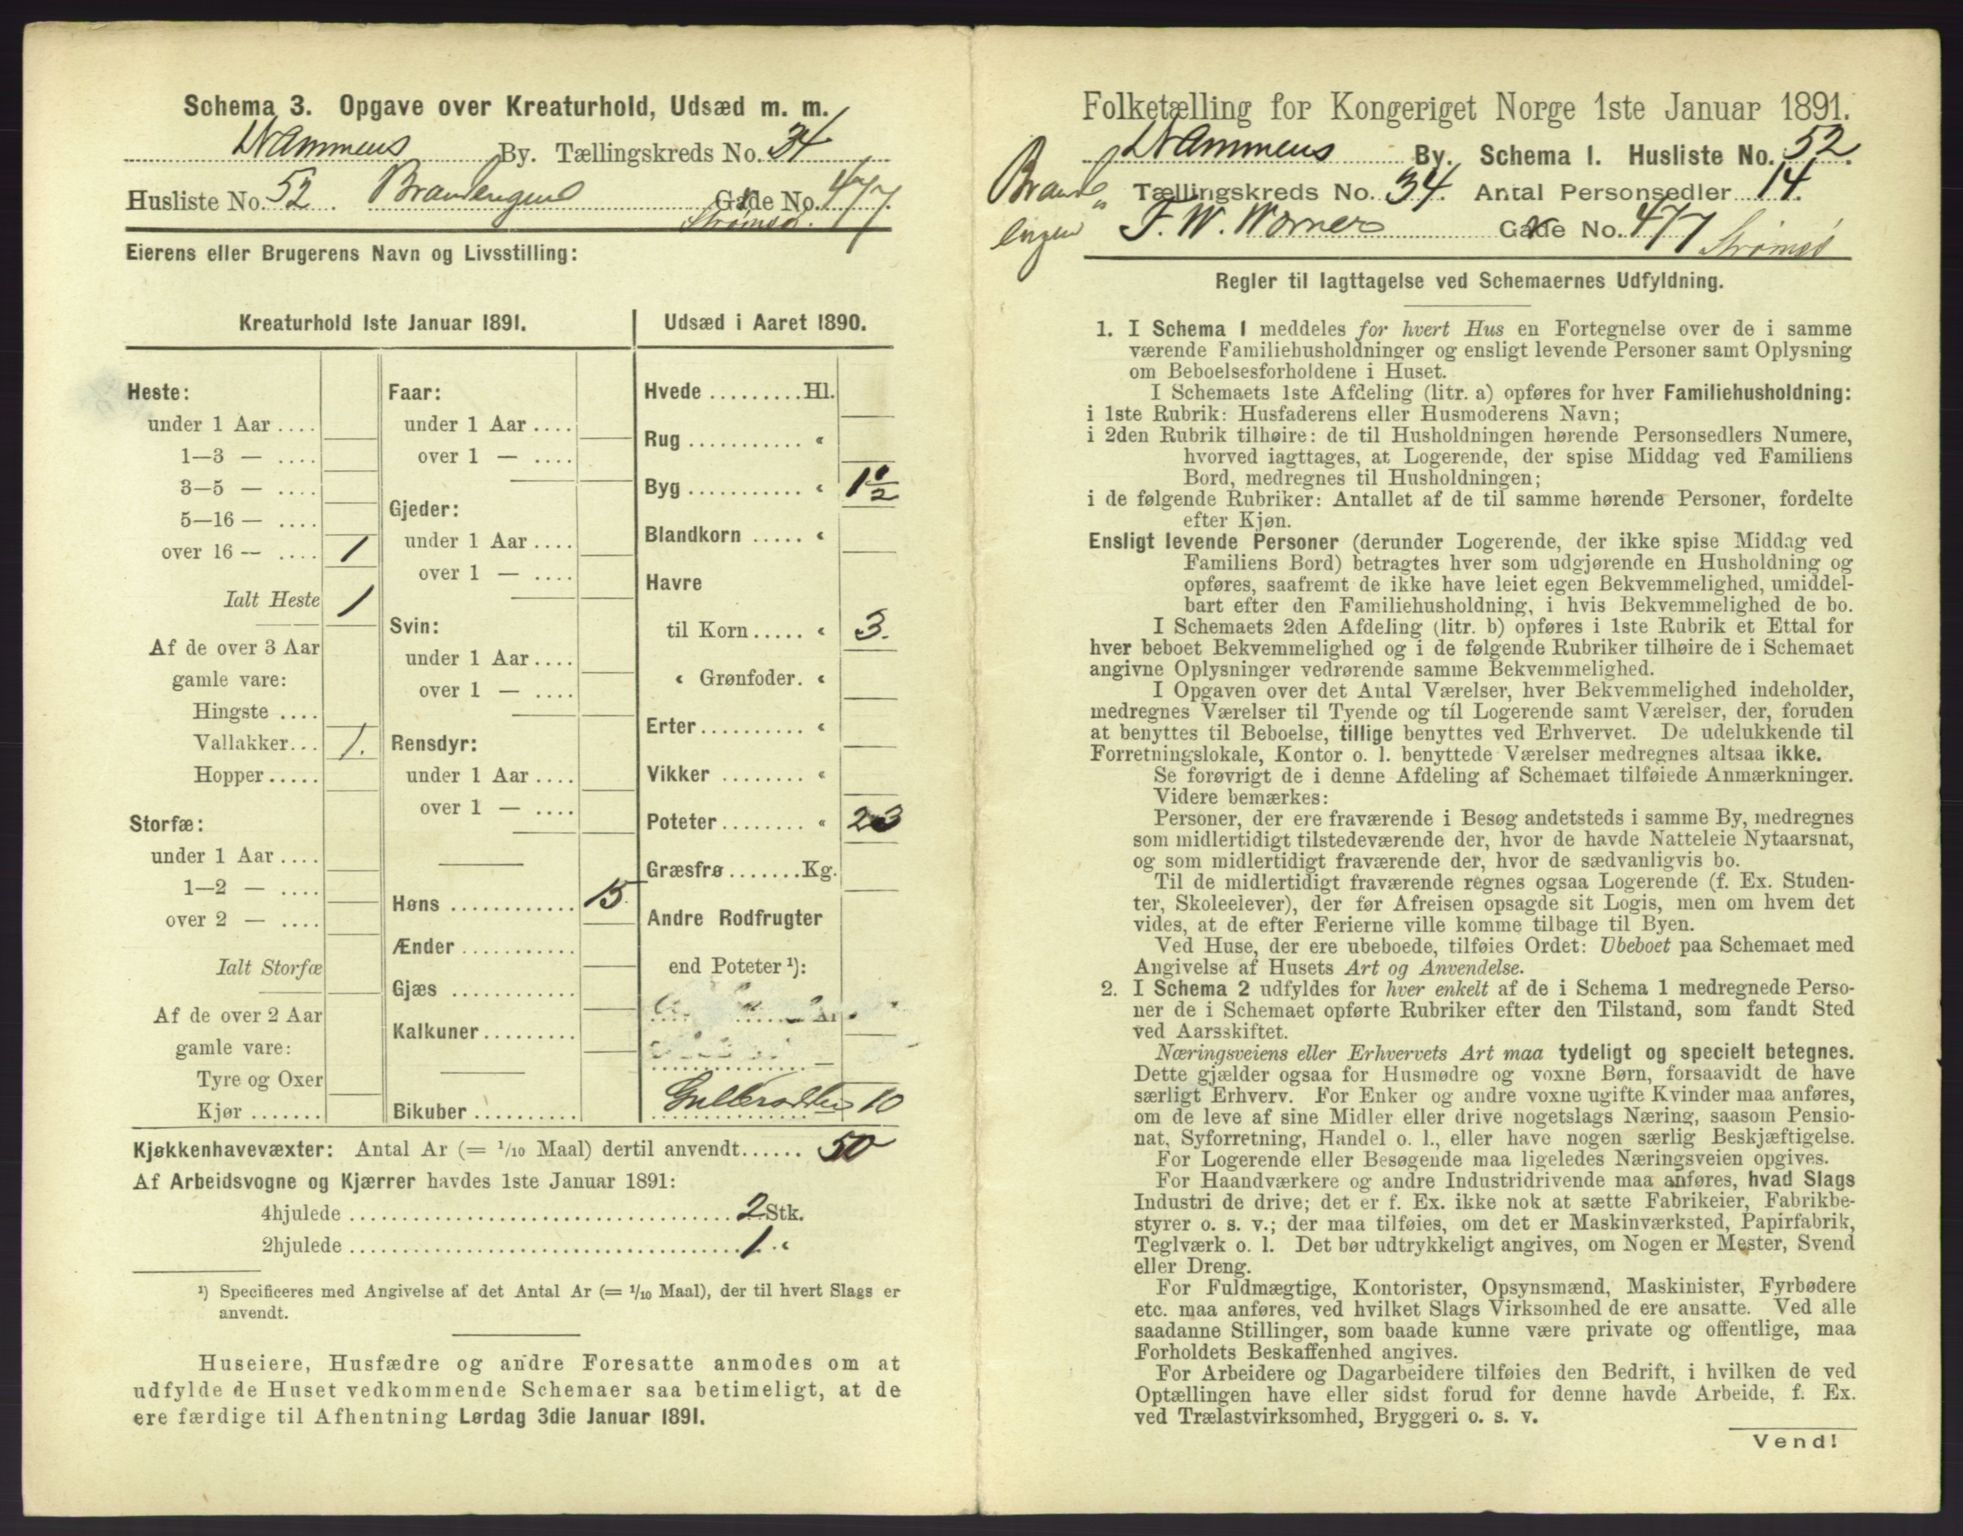 Schema 3. Opgave over Kreaturhold, Udsæd m. m.
Drammens By. Tællingskreds No. 34
Husliste No. 52 Brandengene Gade No. 477.
Strømsø.
Eierens eller Brugerens Navn og Livsstilling:
Kreaturhold 1ste Januar 1891.
Heste:
under 1 Aar ....
1—3 — ....
3—5 — ....
5—16 — ....
over 16 — .... 1
Ialt Heste 1
Af de over 3 Aar
gamle vare:
Hingste ....
Vallakker... 1.
Hopper.....
Storfæ:
under 1 Aar ....
1—2 — ....
over 2 — ....
Ialt Storfæ
Af de over 2 Aar
gamle vare:
Tyre og Oxer
Kjør .......
Faar:
under 1 Aar ....
over 1 — ....
Gjeder:
under 1 Aar ....
over 1 — ....
Svin:
under 1 Aar ....
over 1 — ....
Rensdyr:
under 1 Aar ....
over 1 — ....
Høns ............ 15.
Ænder ............
Gjæs ............
Kalkuner .........
Bikuber ..........
Udsæd i Aaret 1890.
Hvede .........Hl.
Rug ........... «
Byg ........... « 1 1/2
Blandkorn ..... «
Havre
til Korn..... « 3.
« Grønfoder. «
Erter.......... «
Vikker ........ «
Poteter........ « 23
Græsfrø .......Kg.
Andre Rodfrugter
end Poteter ¹):
Gullerødder 10
Kjøkkenhavevæxter: Antal Ar (= 1/10 Maal) dertil anvendt...... 50
Af Arbeidsvogne og Kjærrer havdes 1ste Januar 1891:
4hjulede .................................... 2 Stk.
2hjulede .................................... 1 «
¹) Specificeres med Angivelse af det Antal Ar (= 1/10 Maal), der til hvert Slags er
anvendt.
Huseiere, Husfædre og andre Foresatte anmodes om at
udfylde de Huset vedkommende Schemaer saa betimeligt, at de
ere færdige til Afhentning Lørdag 3die Januar 1891.
Folketælling for Kongeriget Norge 1ste Januar 1891.
Drammens By. Schema 1. Husliste No. 52.
Brand„ Tællingskreds No. 34. Antal Personsedler 14.
engen F. W. Wørner Gade No. 477 Strømsø
Regler til Iagttagelse ved Schemaernes Udfyldning.
1. I Schema 1 meddeles for hvert Hus en Fortegnelse over de i samme
værende Familiehusholdninger og ensligt levende Personer samt Oplysning
om Beboelsesforholdene i Huset.
I Schemaets 1ste Afdeling (litr. a) opføres for hver Familiehusholdning:
i 1ste Rubrik: Husfaderens eller Husmoderens Navn;
i 2den Rubrik tilhøire: de til Husholdningen hørende Personsedlers Numere,
hvorved iagttages, at Logerende, der spise Middag ved Familiens
Bord, medregnes til Husholdningen;
i de følgende Rubriker: Antallet af de til samme hørende Personer, fordelte
efter Kjøn.
Ensligt levende Personer (derunder Logerende, der ikke spise Middag ved
Familiens Bord) betragtes hver som udgjørende en Husholdning og
opføres, saafremt de ikke have leiet egen Bekvemmelighed, umiddel-
bart efter den Familiehusholdning, i hvis Bekvemmelighed de bo.
I Schemaets 2den Afdeling (litr. b) opføres i 1ste Rubrik et Ettal for
hver beboet Bekvemmelighed og i de følgende Rubriker tilhøire de i Schemaet
angivne Oplysninger vedrørende samme Bekvemmelighed.
I Opgaven over det Antal Værelser, hver Bekvemmelighed indeholder,
medregnes Værelser til Tyende og til Logerende samt Værelser, der, foruden
at benyttes til Beboelse, tillige benyttes ved Erhvervet. De udelukkende til
Forretningslokale, Kontor o. l. benyttede Værelser medregnes altsaa ikke.
Se forøvrigt de i denne Afdeling af Schemaet tilføiede Anmærkninger.
Videre bemærkes:
Personer, der ere fraværende i Besøg andetsteds i samme By, medregnes
som midlertidigt tilstedeværende der, hvor de havde Natteleie Nytaarsnat,
og som midlertidigt fraværende der, hvor de sædvanligvis bo.
Til de midlertidigt fraværende regnes ogsaa Logerende (f. Ex. Studen-
ter, Skoleelever), der før Afreisen opsagde sit Logis, men om hvem det
vides, at de efter Ferierne ville komme tilbage til Byen.
Ved Huse, der ere ubeboede, tilføies Ordet: Ubeboet paa Schemaet med
Angivelse af Husets Art og Anvendelse.
2. I Schema 2 udfyldes for hver enkelt af de i Schema 1 medregnede Perso-
ner de i Schemaet opførte Rubriker efter den Tilstand, som fandt Sted
ved Aarsskiftet.
Næringsveiens eller Erhvervets Art maa tydeligt og specielt betegnes.
Dette gjælder ogsaa for Husmødre og voxne Børn, forsaavidt de have
særligt Erhverv. For Enker og andre voxne ugifte Kvinder maa anføres,
om de leve af sine Midler eller drive nogetslags Næring, saasom Pensio-
nat, Syforretning, Handel o. l., eller have nogen særlig Beskjæftigelse.
For Logerende eller Besøgende maa ligeledes Næringsveien opgives.
For Haandværkere og andre Industridrivende maa anføres, hvad Slags
Industri de drive; det er f. Ex. ikke nok at sætte Fabrikeier, Fabrikbe-
styrer o. s. v.; der maa tilføies, om det er Maskinværksted, Papirfabrik,
Teglværk o. l. Det bør udtrykkeligt angives, om Nogen er Mester, Svend
eller Dreng.
For Fuldmægtige, Kontorister, Opsynsmænd, Maskinister, Fyrbødere
etc. maa anføres, ved hvilket Slags Virksomhed de ere ansatte. Ved alle
saadanne Stillinger, som baade kunne være private og offentlige, maa
Forholdets Beskaffenhed angives.
For Arbeidere og Dagarbeidere tilføies den Bedrift, i hvilken de ved
Optællingen have eller sidst forud for denne havde Arbeide, f. Ex.
ved Trælastvirksomhed, Bryggeri o. s. v.
Vend!